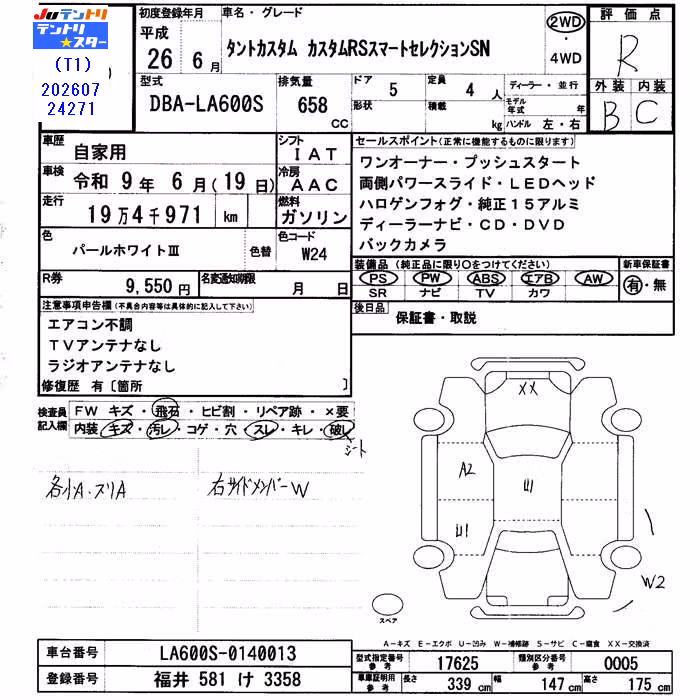 Juテントリ
テントリ
★スター
(T1)
202607
24271
初度登録年月
平成
26 年 6 月
車名・グレード
タントカスタム カスタムRSスマートセレクションSN
2WD
・
4WD
評価点
R
外装 内装
B C
型式
DBA-LA600S
排気量
658
CC
ドア
5
形状
定員
4 人
積載
kg
ディーラー・並行
モデル年式 年
ハンドル 左・右
車歴
自家用
シフト
IAT
車検
令和 9年 6月(19日)
冷房
AAC
走行
19万4千971 km
燃料
ガソリン
色
パールホワイトⅢ
色替
色コード
W24
R券
9,550円
名変通知期限
月 日
セールスポイント(正常に機能するものに限ります)
ワンオーナー・プッシュスタート
両側パワースライド・LEDヘッド
ハロゲンフォグ・純正15アルミ
ディーラーナビ・CD・DVD
バックカメラ
装備品(純正品に限り○をつけてください)
PS PW ABS エアB AW
SR ナビ TV カワ
新車保証書
有・無
後日品
保証書・取説
注意事項申告欄(不具合内容等は具体的に記入して下さい)
エアコン不調
TVアンテナなし
ラジオアンテナなし
修復歴 有〔箇所 〕
検査員
記入欄
FW キズ・飛石・ヒビ割・リペア跡・×要
内装・キズ・汚レ・コゲ・穴・スレ・キレ・破レ
シート
各小A・スリA
右サイドメンバーW
XX
A2
U1
U1
W2
スペア
A-キズ E-エクボ U-凹み W-補修跡 S-サビ C-腐食 XX-交換済
車台番号
LA600S-0140013
登録番号
福井 581 け 3358
型式指定番号
参考
17625
類別区分番号
参考
0005
車庫証明用
参考
長さ 339 cm 幅 147 cm 高さ 175 cm